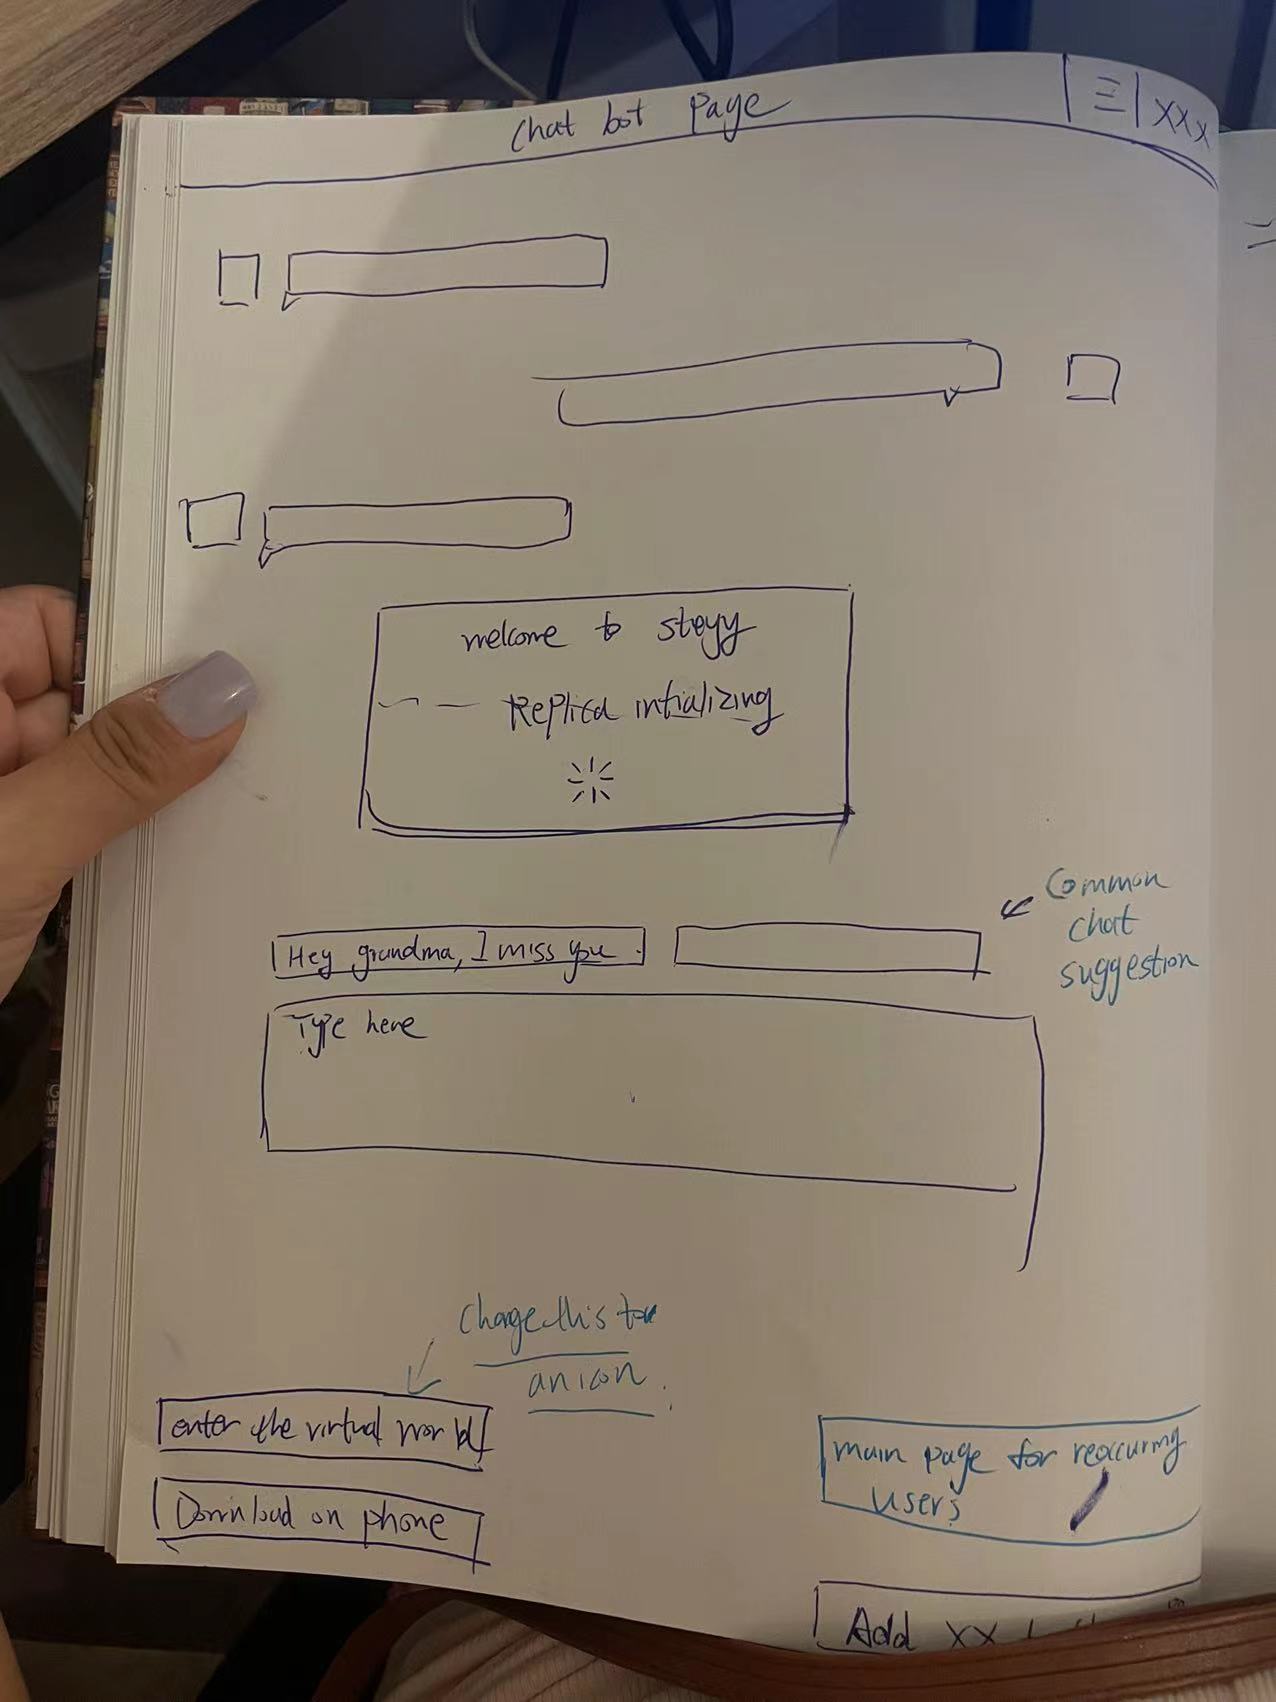 Chat bot Page
XXX
welcome to stayy
Replica intializing
Common
chat
suggestion
Hey grandma, I miss you.
Type here
Change this to
an icon.
enter the virtual world
Download on phone
main page for reoccuring
users
Add XX